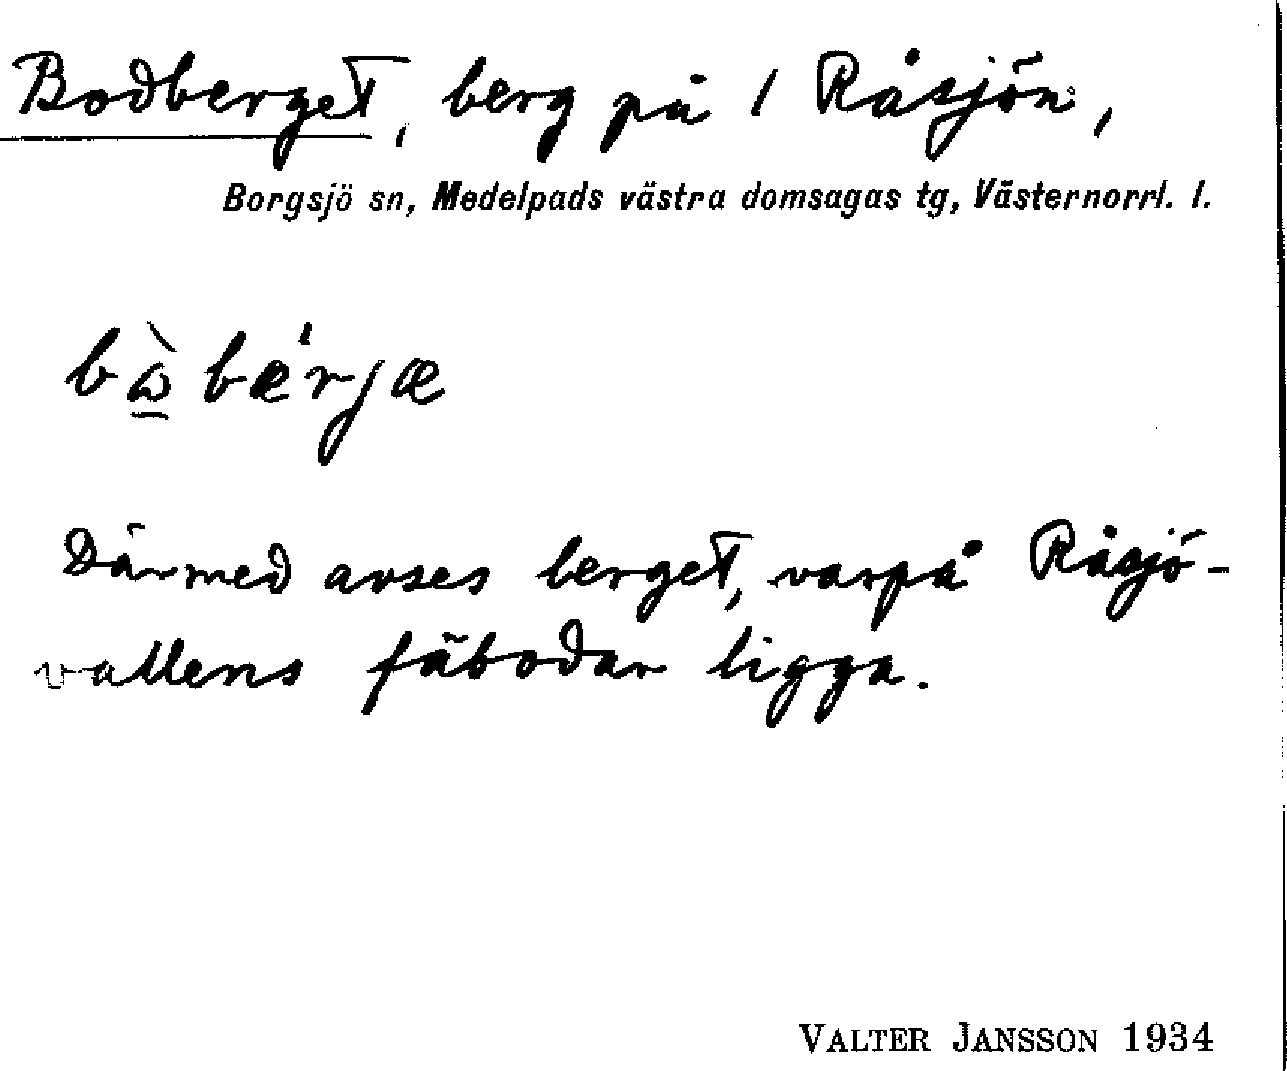 Bodberget, berg på 1 Råsjön,
Borgsjö sn, Medelpads västra domsagas tg, Västernorrl. l.
bὼbærjæ
Därmed avses berget, varpå Råsjö-
vallens fäbodar ligga.
VALTER JANSSON 1934